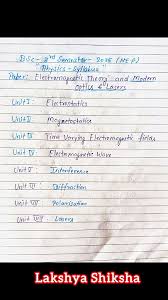 BSc - 2nd Semester - 2025 (NEP)
"Physics - Syllabus"
Paper: Electromagnetic Theory and Modern
Optics & Lasers
Unit I: Electrostatics
Unit II Magnetostatics
Unit III Time Varying Electromagnetic fields
Unit IV Electromagnetic Wave
Unit V Interference
Unit VI Diffraction
Unit VII Polarisation
Unit VIII Lasers
Lakshya Shiksha